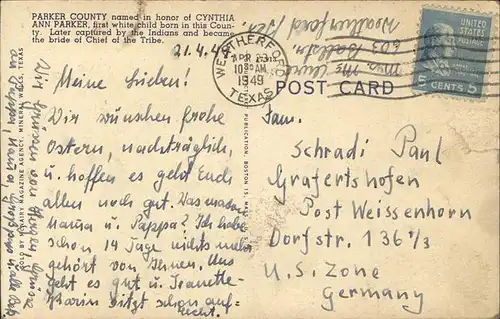 PARKER COUNTY named in honor of CYNTHIA
ANN PARKER, first white child born in this Coun-
ty. Later captured by the Indians and became
the bride of Chief of the Tribe.
21.4.4
Meine Lieben!
Wir wünschen frohe
Ostern, nachträglich,
u. hoffen es geht Euch
allen noch gut. Was machen
Mama u. Pappa? Ich habe
schon 14 Tage nichts mehr
gehört von Ihnen. Uns
geht es gut u. Jeanette-
Karin sitzt schon auf-
recht.
WEATHERFORD
APR 23
10 30 AM
1949
TEXAS
UNITED STATES
CENTS 5
POST CARD
Fam.
Schradi Paul
Grafertshofen
Post Weissenhorn
Dorfstr. 136 1/3
U.S. Zone
Germany
603
Weatherford
PUBLICATION, BOSTON 15, MASS.
SOLD BY MAGAZINE AGENCY, MINERAL WELLS, TEXAS